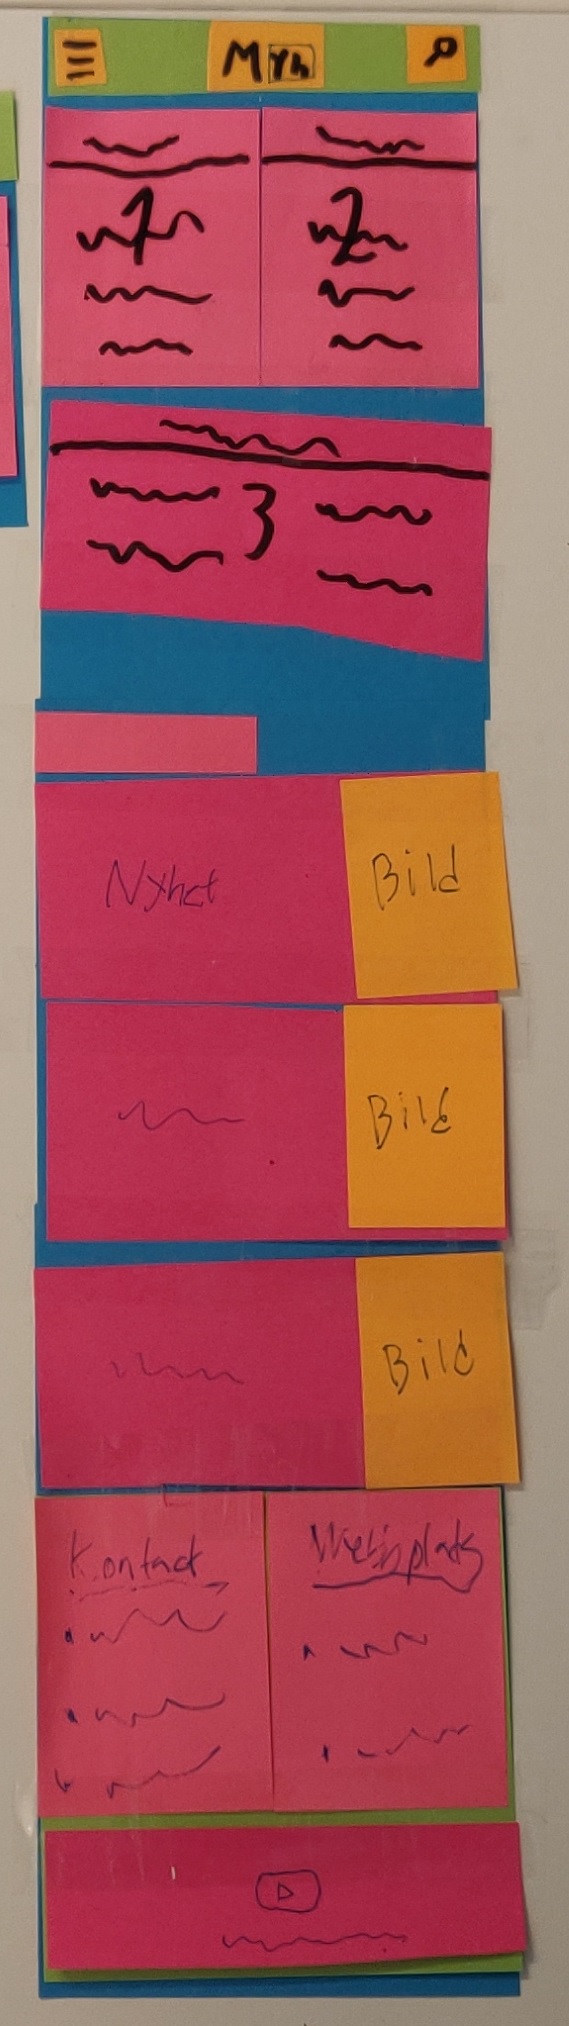 Myh
1
2
3
Nyhet
Bild
Bild
Bild
Kontact
Webbplats